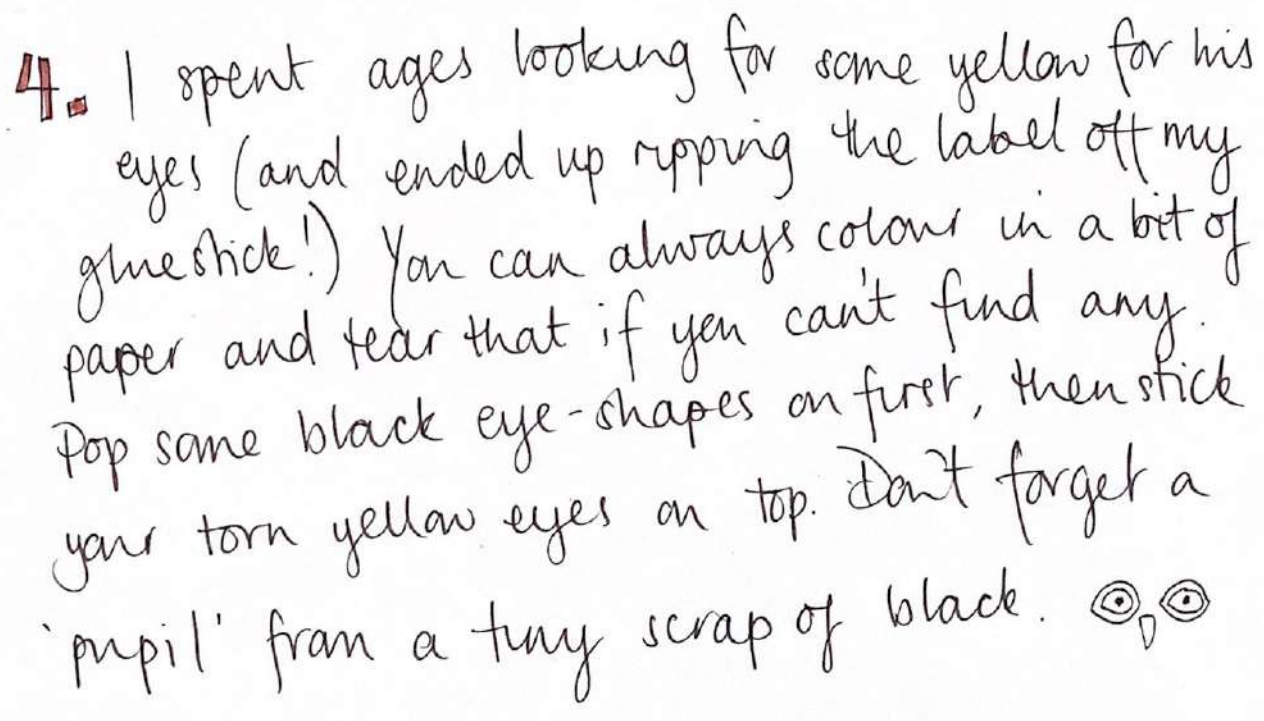 4. I spent ages looking for some yellow for his
eyes (and ended up ripping the label off my
gluestick!) You can always colour in a bit of
paper and tear that if you can't find any.
Pop some black eye-shapes on first, then stick
your torn yellow eyes on top. Don't forget a
'pupil' from a tiny scrap of black.